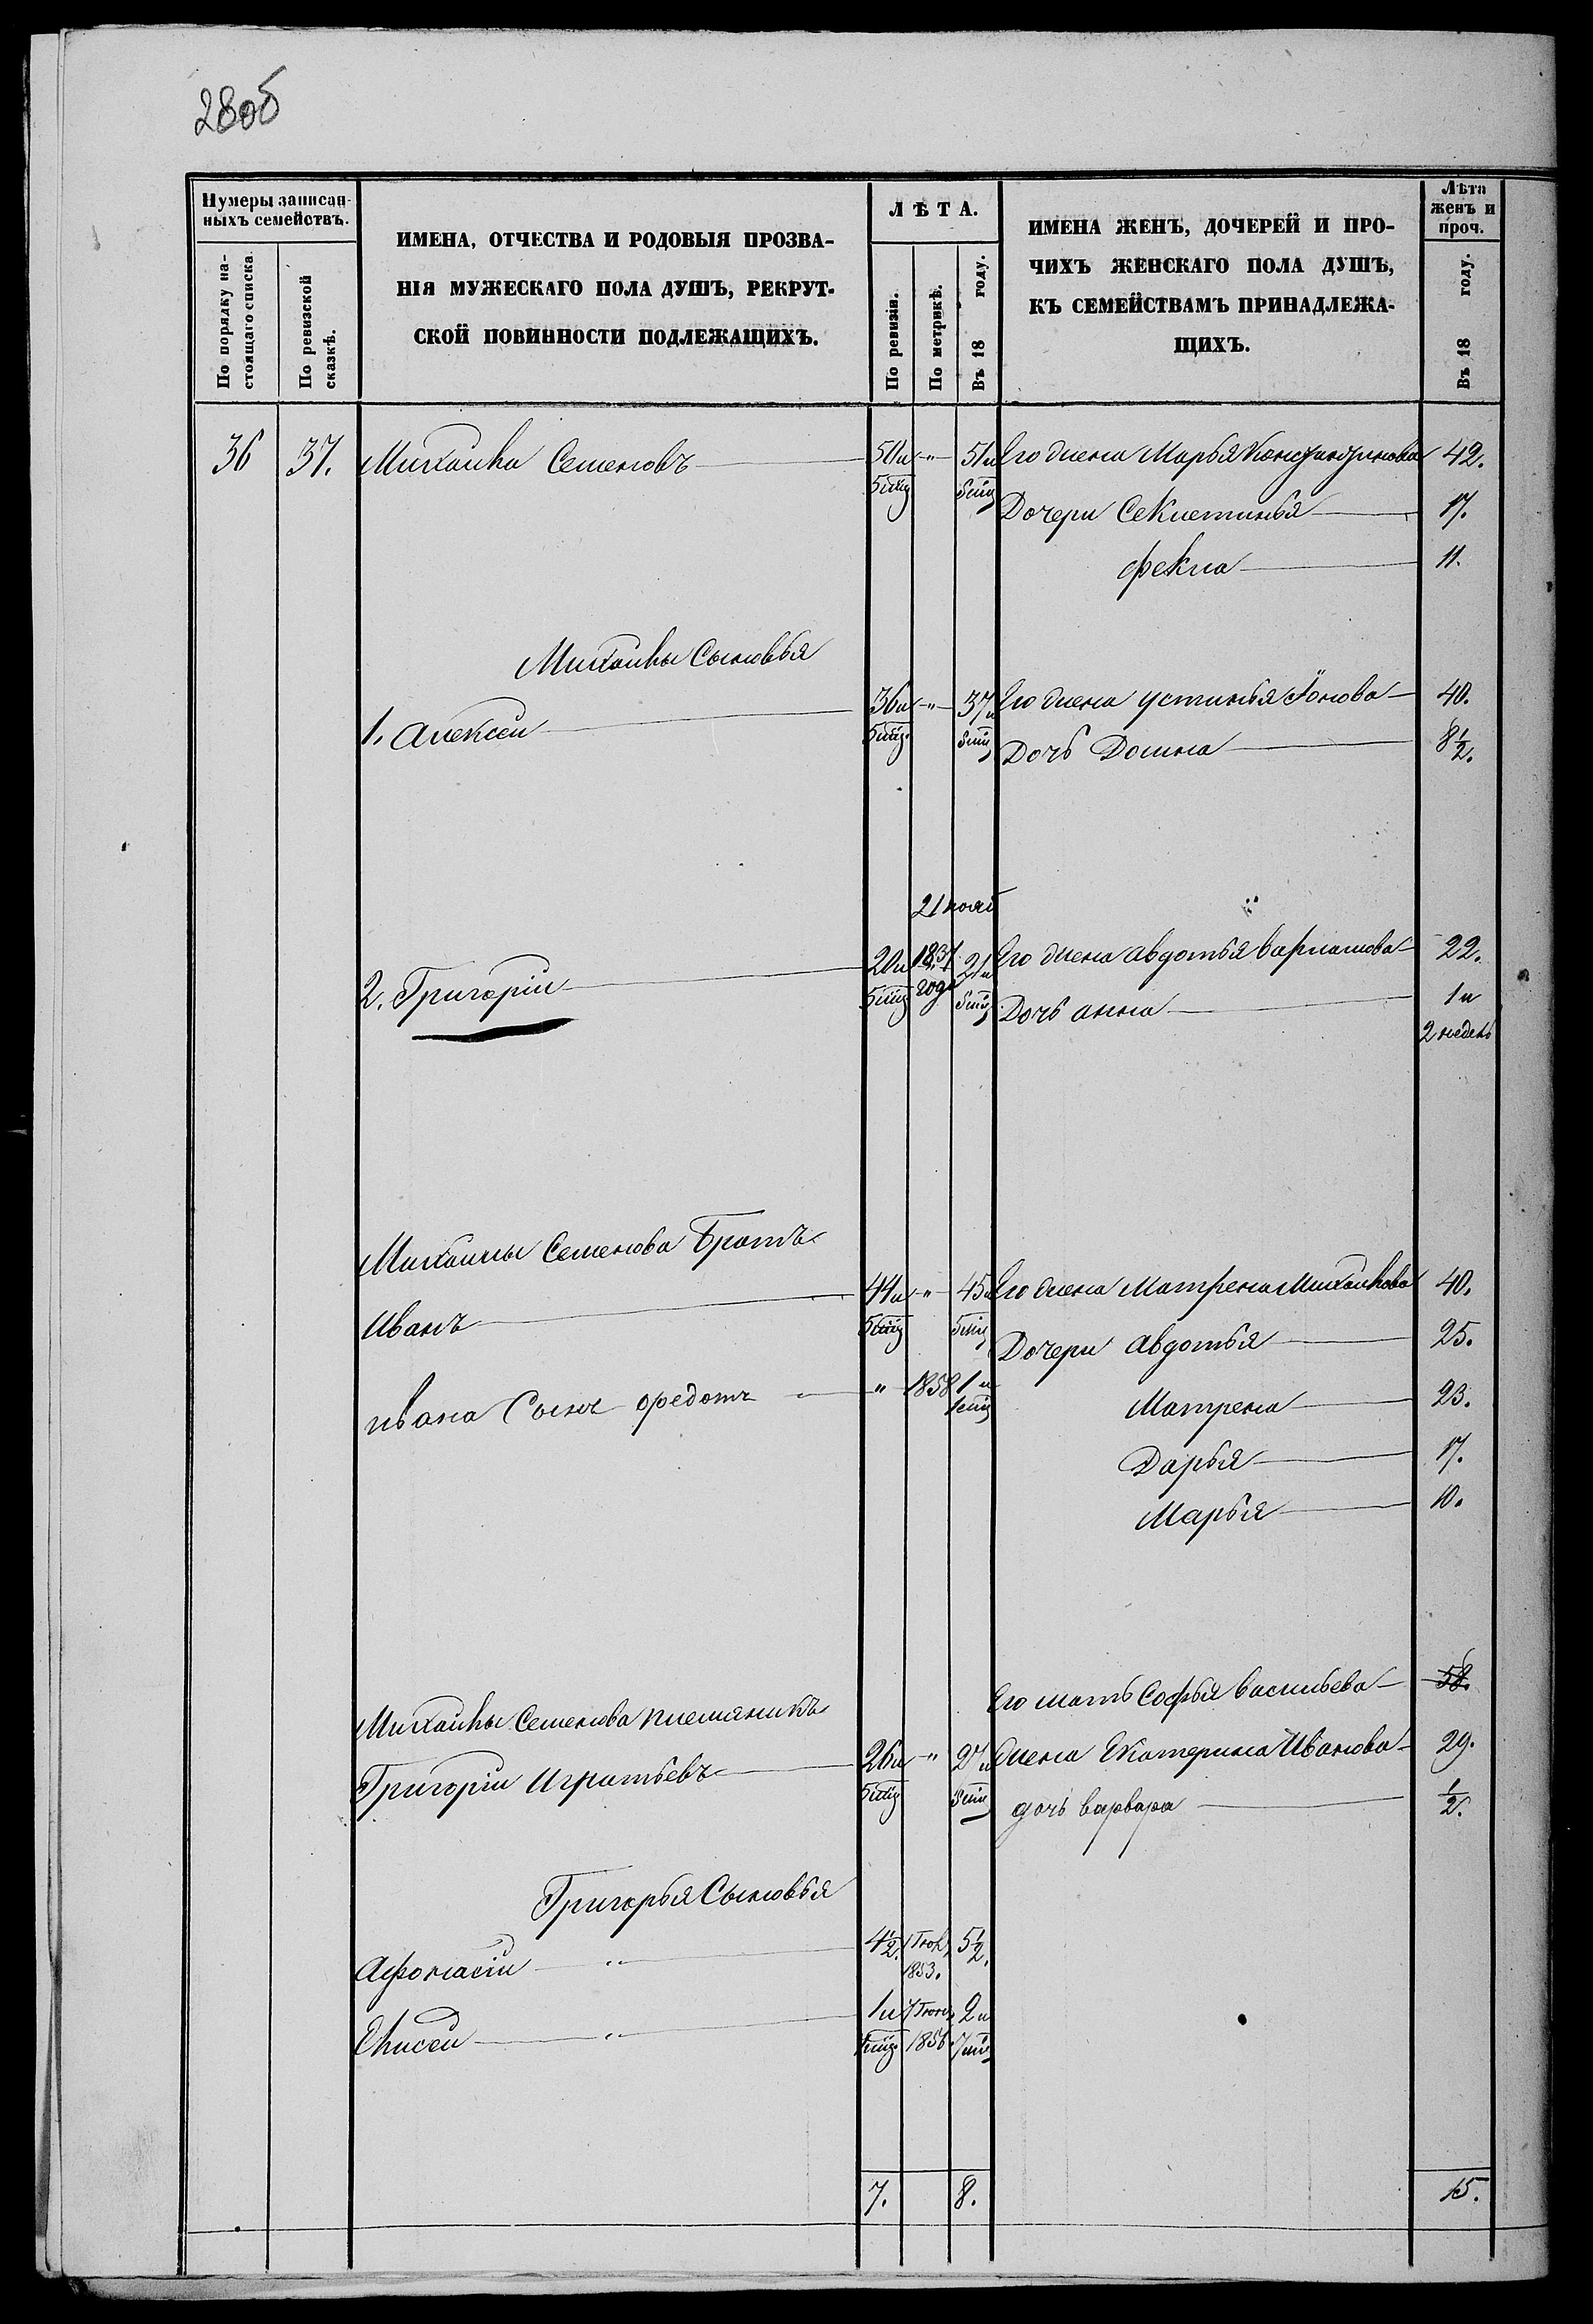 28об
Нумеры записан-
ныхъ семействъ.
По порядку на-
стоящаго списка.
По ревизской
сказкѣ.
ИМЕНА, ОТЧЕСТВА И РОДОВЫЯ ПРОЗВА-
НІЯ МУЖЕСКАГО ПОЛА ДУШЪ, РЕКРУТ-
СКОЙ ПОВИННОСТИ ПОДЛЕЖАЩИХЪ.
ЛѢТА.
По ревизіи.
По метрикѣ.
Въ 18 году.
ИМЕНА ЖЕНЪ, ДОЧЕРЕЙ И ПРО-
ЧИХЪ ЖЕНСКАГО ПОЛА ДУШЪ,
КЪ СЕМЕЙСТВАМЪ ПРИНАДЛЕЖА-
ЩИХЪ.
Лѣта
женъ и
проч.
Въ 18 году.
36 37. Михайла Семеновъ 50 и " 51 и Его жена Марья Константинова 42.
5 мц 5 мц
Дочери Секлетинья 17.
Фекла 11.
Михайлы Сыновья
1. Алексеи 36 и " 37 и Его жена Устинья Іонова 40.
5 мц. 5 мц Дочь Домна 8 1/2.
21 нояб
2. Григоріи 20 и 1837 21 и Его жена Авдотья Варламова 22.
5 мц года 5 мц Дочь анна 1 и
2 недель
Михаилы Семенова Братъ
Иванъ 44 и " 45 и Его жена Матрена Михайлова 40.
5 мц 5 мц
Дочери Авдотья 25.
Ивана Сынъ Федотъ " 1858 1 и
1 мц
Матрена 23.
Дарья 17.
Марья 10.
Его мать Софья Васильева 58.
Михайлы Семенова племяникъ
Григоріи Игнатьевъ 26 и " 27 и жена Екатерина Иванова 29.
5 мц 5 мц дочь варвара 1/2.
Григорья Сыновья
Афонасіи " 4 1/2. 1853. 5 1/2.
Елисеи " 1 и 7 2 и
1856. 7 мц
7. 8. 15.